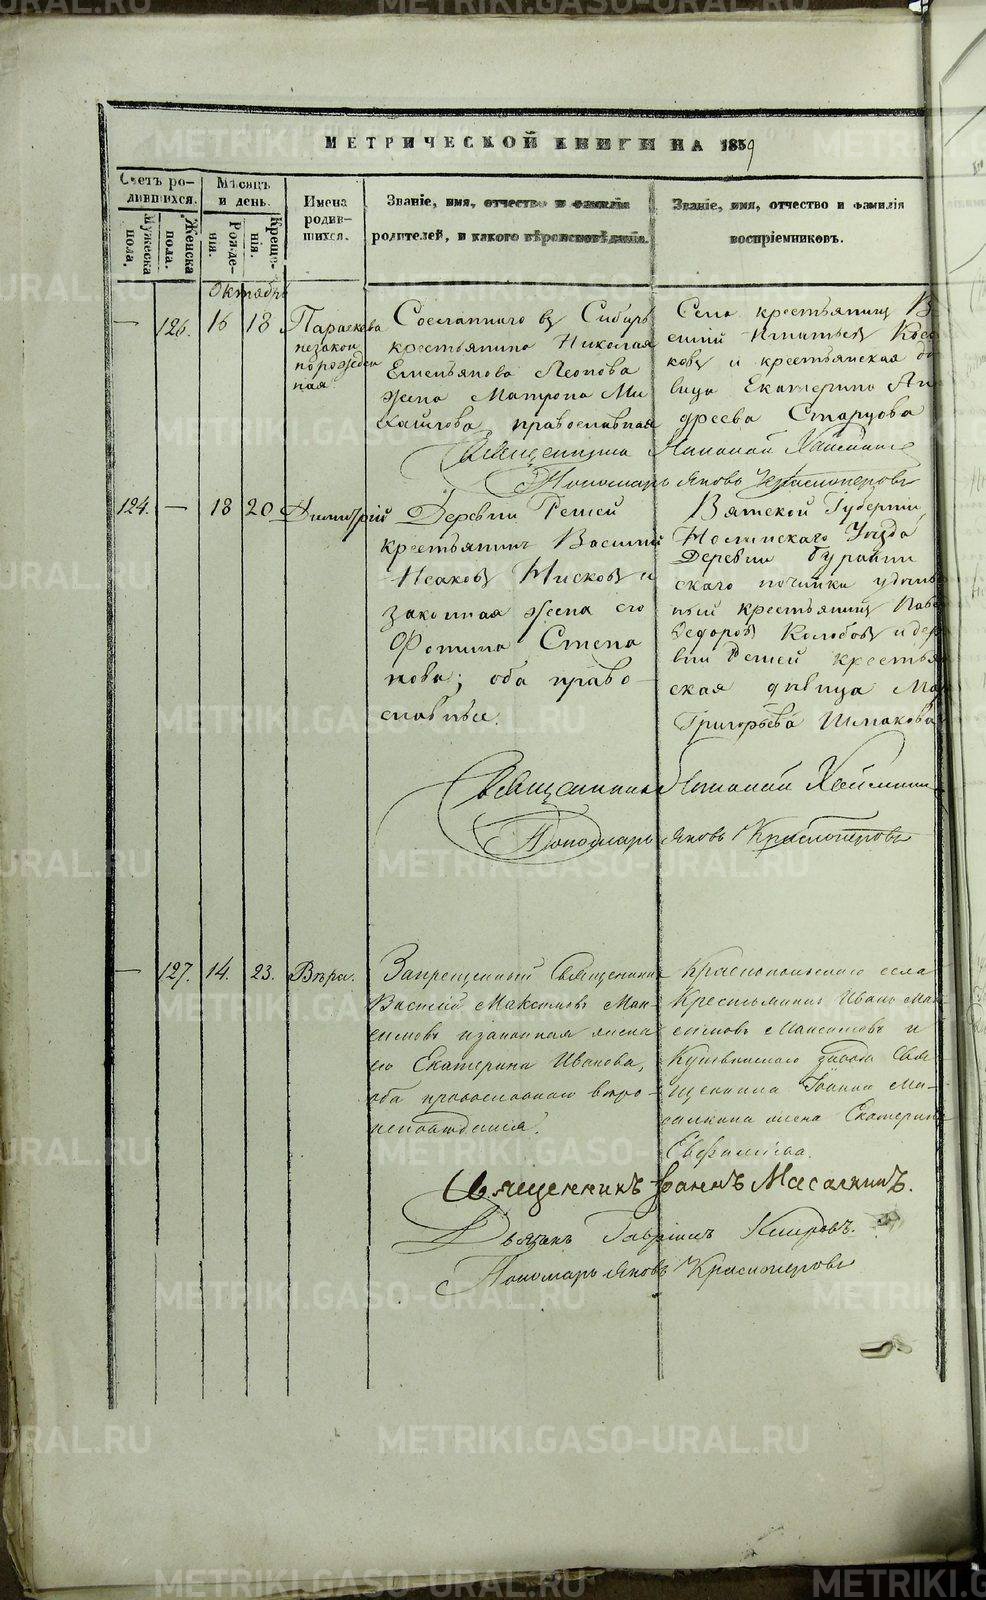 МЕТРИЧЕСКОЙ КНИГИ НА 1859
Счетъ ро-
дившихся.
Мужеска пола.
Женска пола.
Мѣсяцъ
и день.
Рожде-
нія.
Креще-
нія.
Имена
родив-
шихся.
Званіе, имя, отчество и фамилія
родителей, и какого вѣроисповѣданія.
Званіе, имя, отчество и фамилія
воспріемниковъ.
Октябрь
— 126. 16 18
Параскева
незакон
норожден
ная
Сосланнаго въ Сибирь
крестьянина Николая
Емельянова Леонова
жена Матрона Ми
хайлова, православная
Села крестьянинъ В
силий Игнатьевъ
ковъ и крестьянская дѣ
вица Екатерина Ан
дреева Старцова
Священникъ
Пономарь Яковъ Красноперовъ
124. — 18 20
Димитрій
Деревни Решей
крестьянинъ Василий
Исаковъ и
законная жена его
Фотина Степа
нова; оба право-
славные.
Вятской Губерніи,
Уѣзда
Деревни
скаго починка удѣль
ный крестьянинъ Пав
Федоровъ Колобовъ и дер
вни Решей крестьян
ская дѣвица Мар
Григорьева Шмакова
Священникъ
Пономарь Яковъ Красноперовъ
— 127. 14. 23. Вѣра.
Запрещенный Священникъ
Василій Максимовъ Мак-
симовъ и законная жена
его Екатерина Иванова,
оба православнаго вѣро-
исповѣданія.
Краснопольскаго села
Крестьянинъ Иванъ Мак
симовъ Максимовъ и
Кушвинскаго завода Свя-
щенника Іоанна Ма-
салкина жена Екатерина
Евфимова.
Священникъ Іоаннъ Масалкинъ.
Дьячекъ Гавріилъ
Пономарь Яковъ Красноперовъ
METRIKI.GASO-URAL.RU